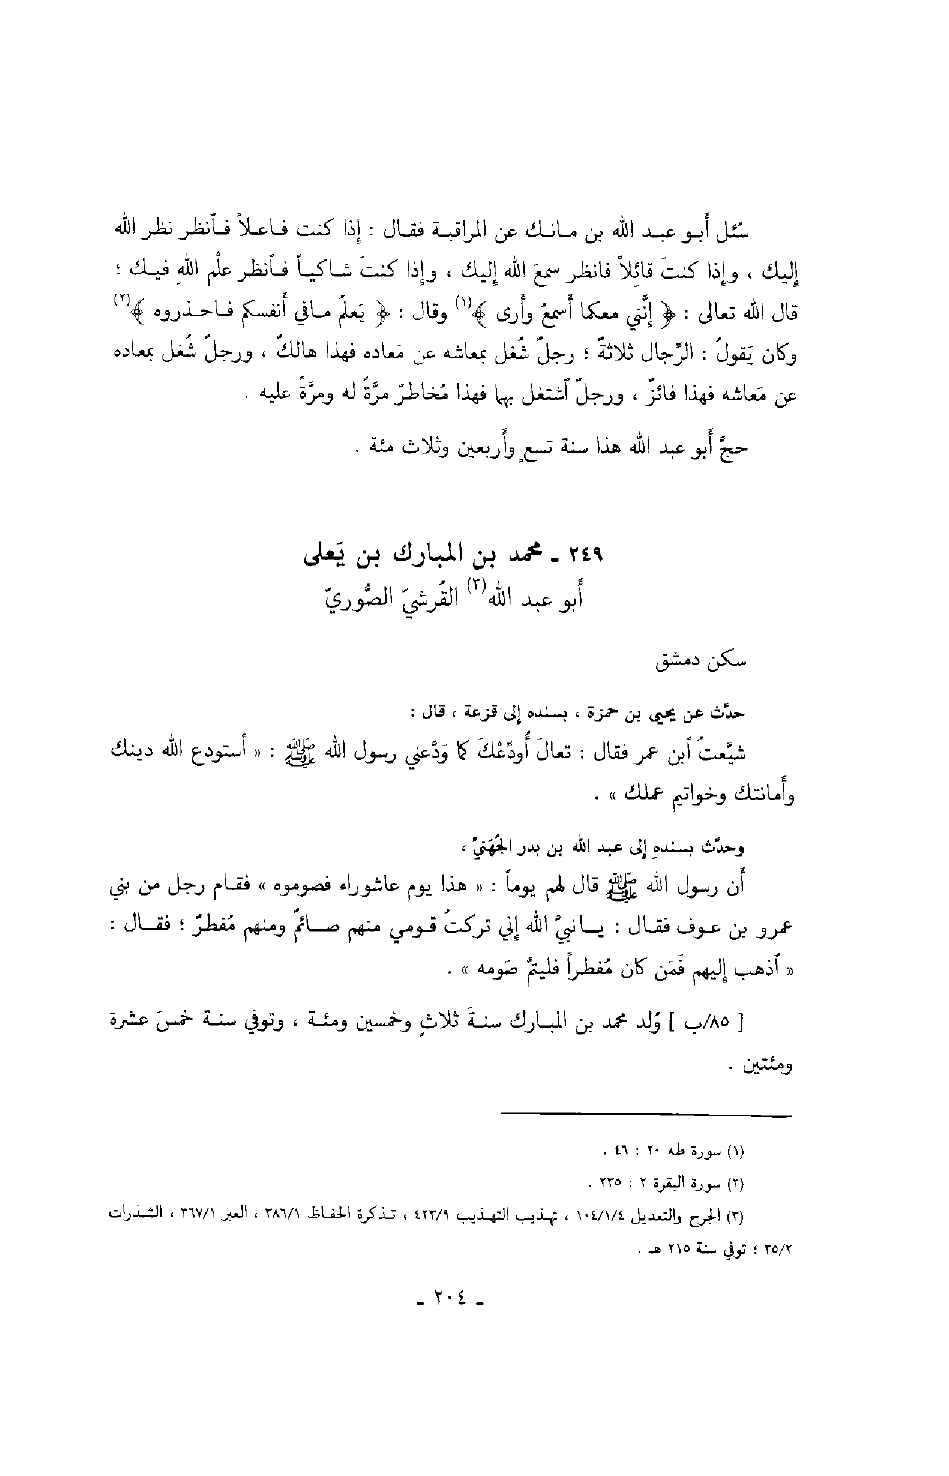 سُئل أبو عبد الله بن مانك عن المراقبة فقال : إذا كنت فاعلاً فٱنظر نظر الله
إليك ، وإذا كنتَ قائلاً فانظر سمعَ الله إليك ، وإذا كنتَ شاكياً فٱنظر علْم الله فيك ؛
قال الله تعالى : ﴿ إنَّني معكما أسمعُ وأرى ﴾(١) وقال : ﴿ يَعلمُ مافي أنفسكم فاحذروه ﴾(٢)
وكان يَقولُ : الرِّجال ثلاثةٌ ؛ رجلٌ شُغل بمعاشه عن مَعاده فهذا هالكٌ ، ورجلٌ شُغل بمعاده
عن مَعاشه فهذا فائزٌ ، ورجلٌ ٱشتغل بها فهذا مُخاطرٌ مرَّةً له ومرَّةً عليه .
حجَّ أبو عبد الله هذا سنة تسعٍ وأربعين وثلاث مئة .
٢٤٩ ـ محمد بن المبارك بن يَعلى
أبو عبد الله(٣) القُرشيّ الصُّوريّ
سكن دمشق
حدَّث عن يحيى بن حمزة ، بسنده إلى قزعة ، قال :
شيَّعتُ ٱبن عمر فقال : تعالَ أُودِّعْكَ كما وَدَّعني رسول الله ﷺ : « أستودع الله دينك
وأمانتك وخواتيم عملك » .
وحدَّث بسنده إلى عبد الله بن بدر الجُهَنيّ ،
أن رسول الله ﷺ قال لهم يوماً : « هذا يوم عاشوراء فصوموه » فقام رجل من بني
عمرو بن عوف فقال : يانبيَّ الله إني تركتُ قومي منهم صائمٌ ومنهم مُفطرٌ ؛ فقال :
« ٱذهب إليهم فَمَن كان مُفطراً فليتمَّ صَومه » .
[ ٨٥/ب ] وُلد محمد بن المبارك سنةَ ثلاثٍ وخمسين ومئة ، وتوفي سنة خمسَ عشرة
ومئتين .
(١) سورة طه ٢٠ : ٤٦ .
(٢) سورة البقرة ٢ : ٢٣٥ .
(٣) الجرح والتعديل ١٠٤/١/٤ ، تهذيب التهذيب ٤٢٣/٩ ، تذكرة الحفاظ ٣٨٦/١ ، العبر ٣٦٧/١ ، الشذرات
٣٥/٢ ؛ توفي سنة ٢١٥ هـ .
ـ ٢٠٤ ـ